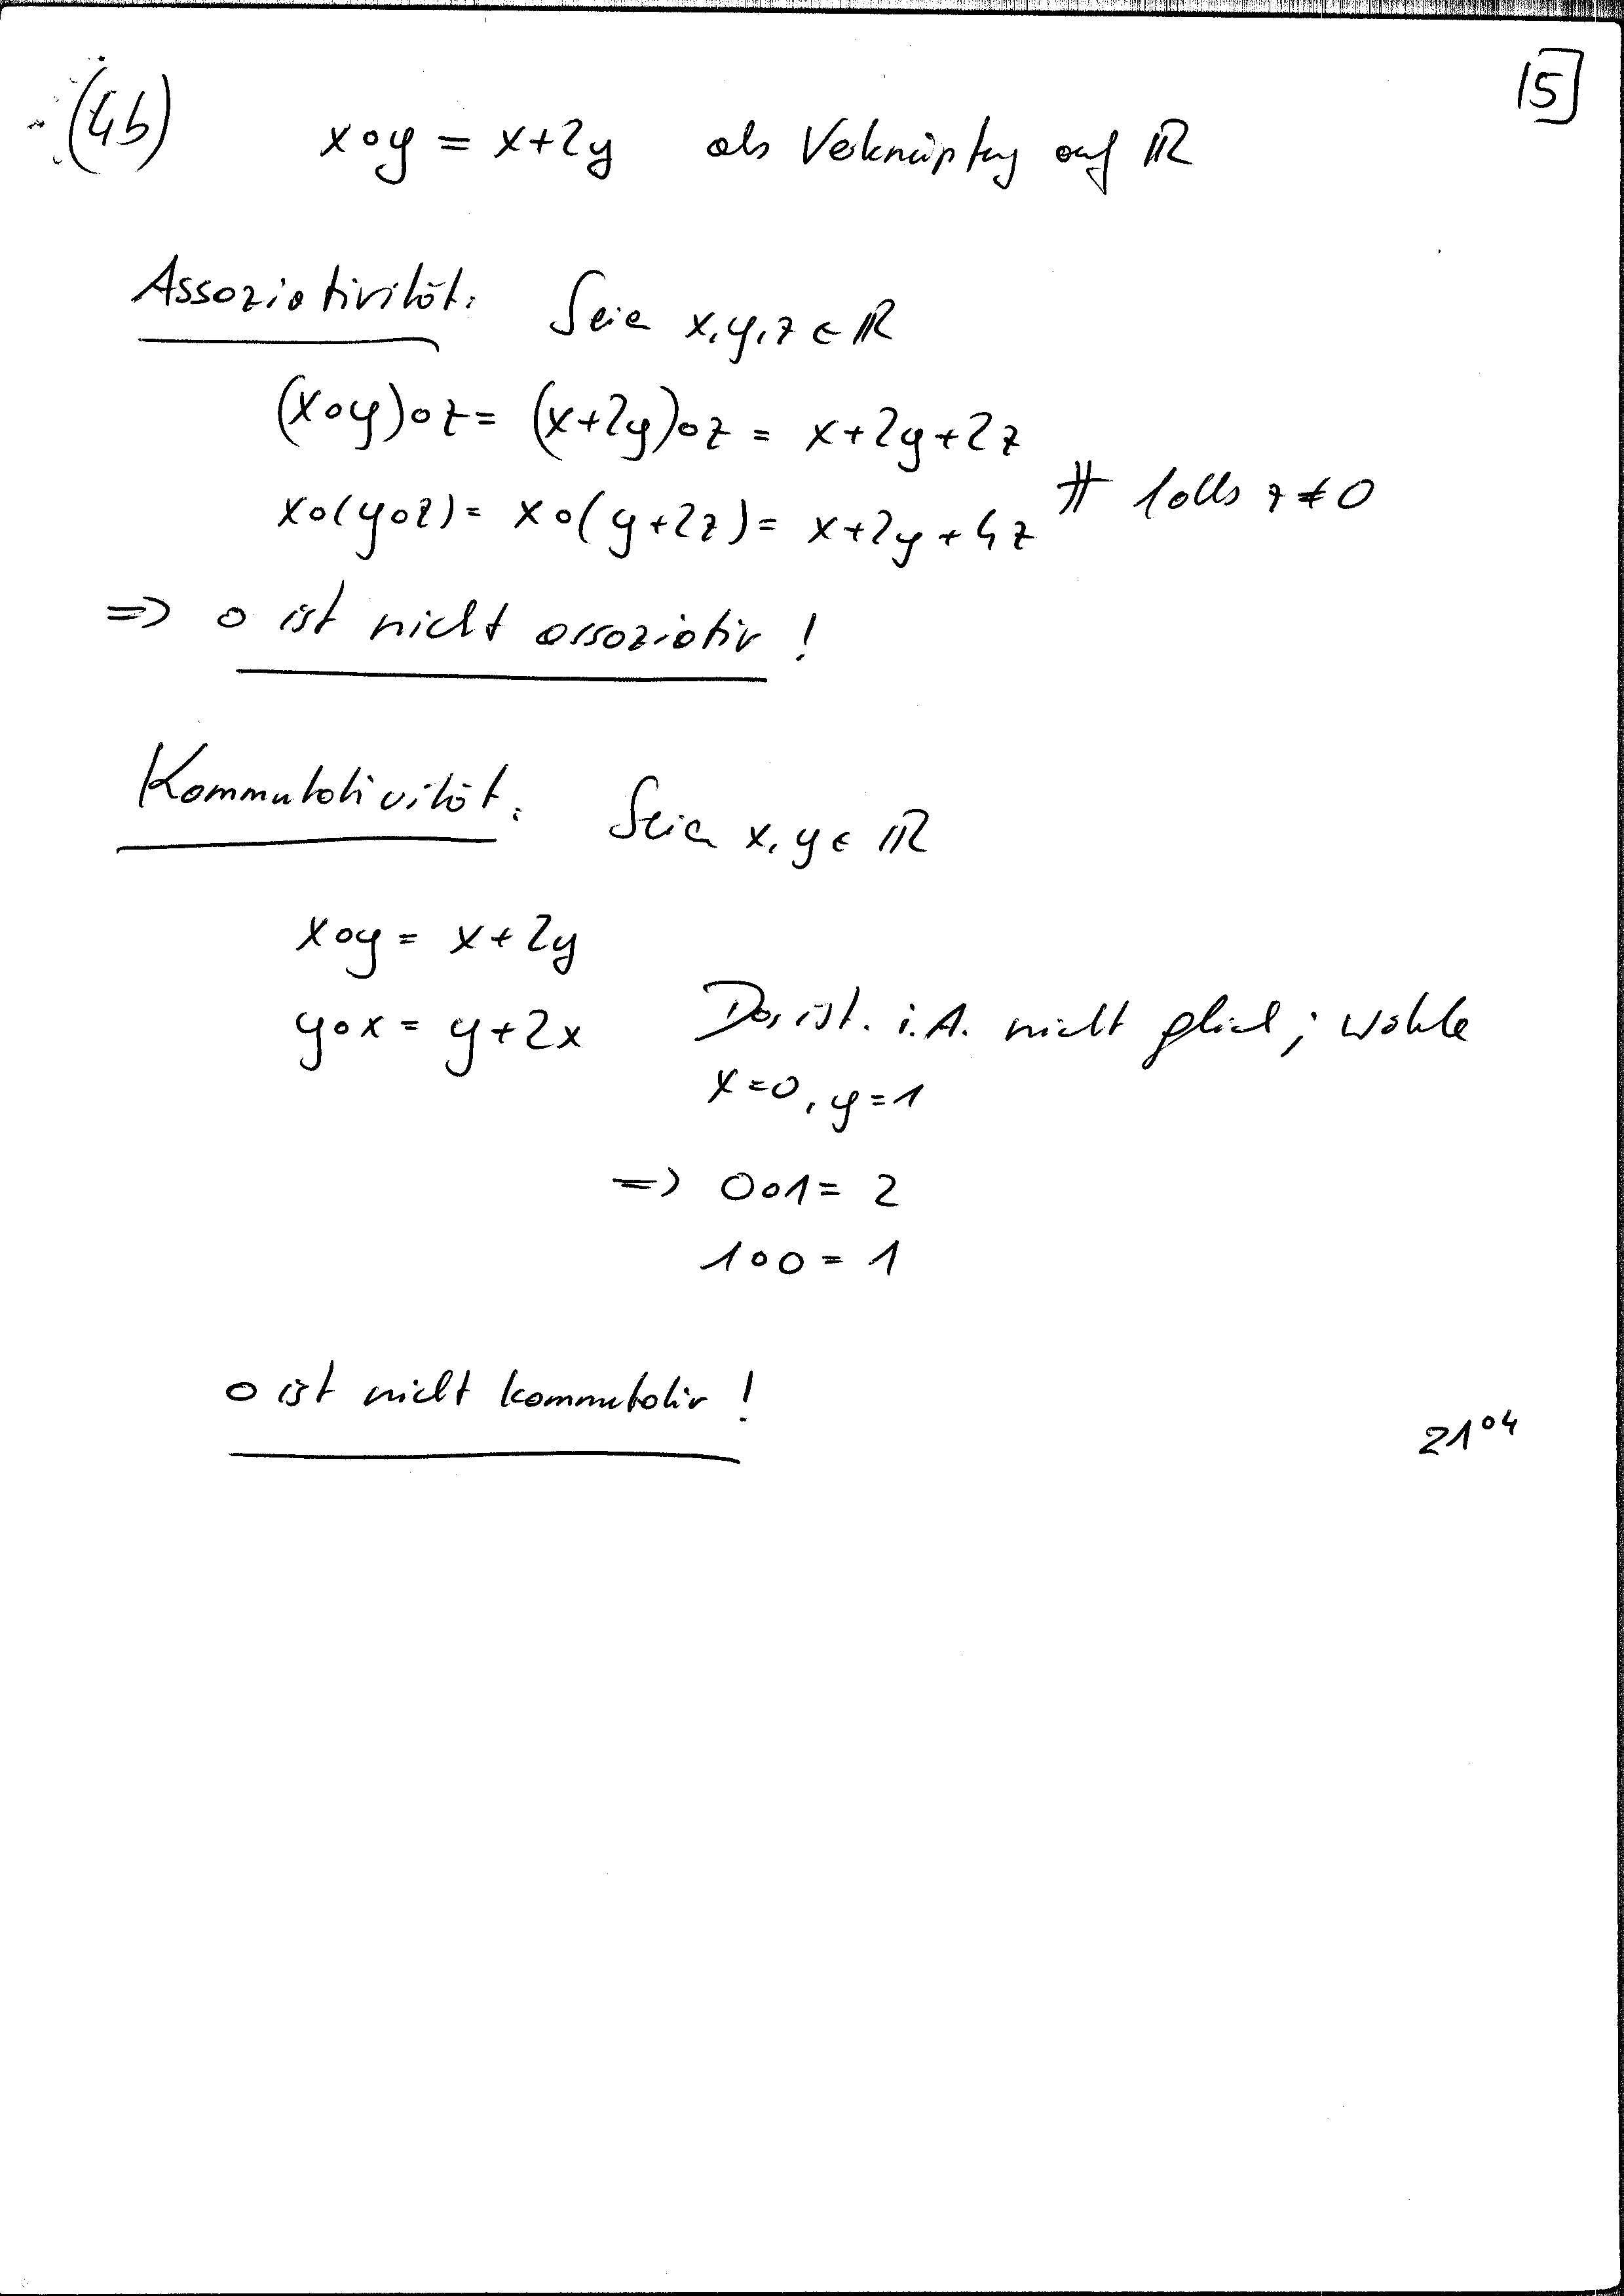 (4b) x∘y = x+2y als Verknüpfung auf ℝ
15
Assoziativität: Seien x,y,z ∈ ℝ
(x∘y)∘z = (x+2y)∘z = x+2y+2z
≠ falls z≠0
x∘(y∘z) = x∘(y+2z) = x+2y+4z
=> ∘ ist nicht assoziativ!
Kommutativität: Seien x,y ∈ ℝ
x∘y = x+2y
y∘x = y+2x Das ist. i.A. nicht gleich; wähle
x=0, y=1
=> 0∘1 = 2
1∘0 = 1
∘ ist nicht kommutativ!
21⁰⁴